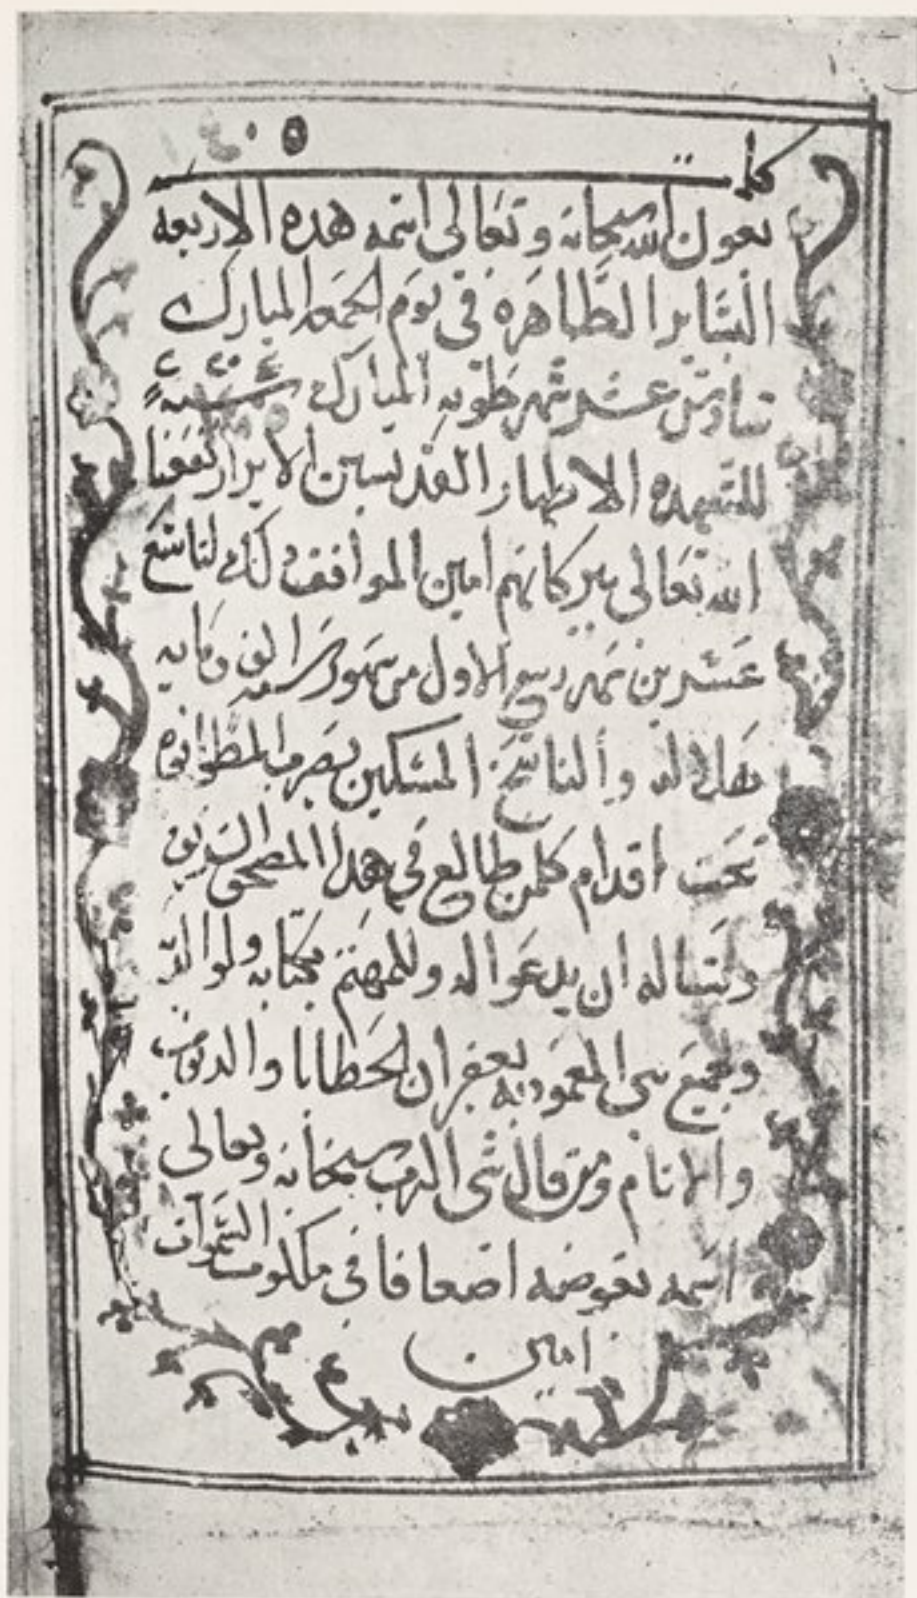 كملت
بعون الله سبحانه وتعالى اسمه هده الاربعه
البشاير الطاهره في يوم الجمعه المبارك
سادس عشر شهر طوبه المبارك سنة
للشهده الاطهار القديسين الابرار نفعنا
الله تعالى ببركاتهم امين الموافق دلك لتاسع
عشرين شهر ربيع الاول من شهور سنه الف ومايه
هلاليه والناسخ المسكين يضرب المطوانوه
تحت اقدام كلمن طالع في هدا المصحف الشريف
ويساله ان يدعوا له وللمهتم بكتابه ولوالديه
ولجميع بني المعموديه بغفران الخطايا والدنوب
والاتام ومن قال شي الرب سبحانه وتعالى
اسمه يعوضه اضعافا في ملكوت السموات
امين